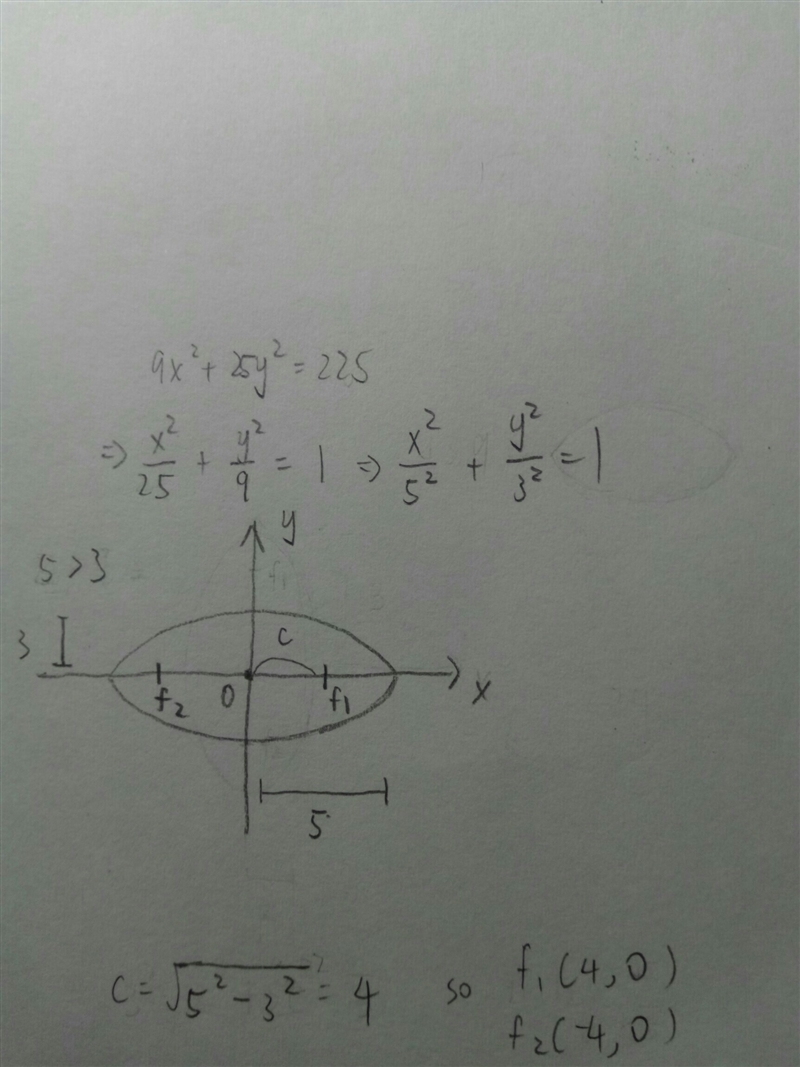 9x² + 25y² = 225
⇒ x²/25 + y²/9 = 1 ⇒ x²/5² + y²/3² = 1
y
5 > 3
3
c
f₂ 0 f₁ x
5
c = √(5² - 3²) = 4 so f₁(4, 0)
f₂(-4, 0)